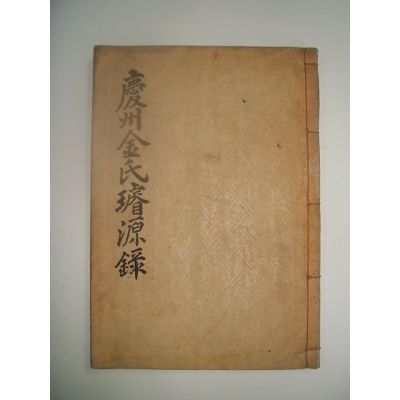 慶州金氏璿源錄